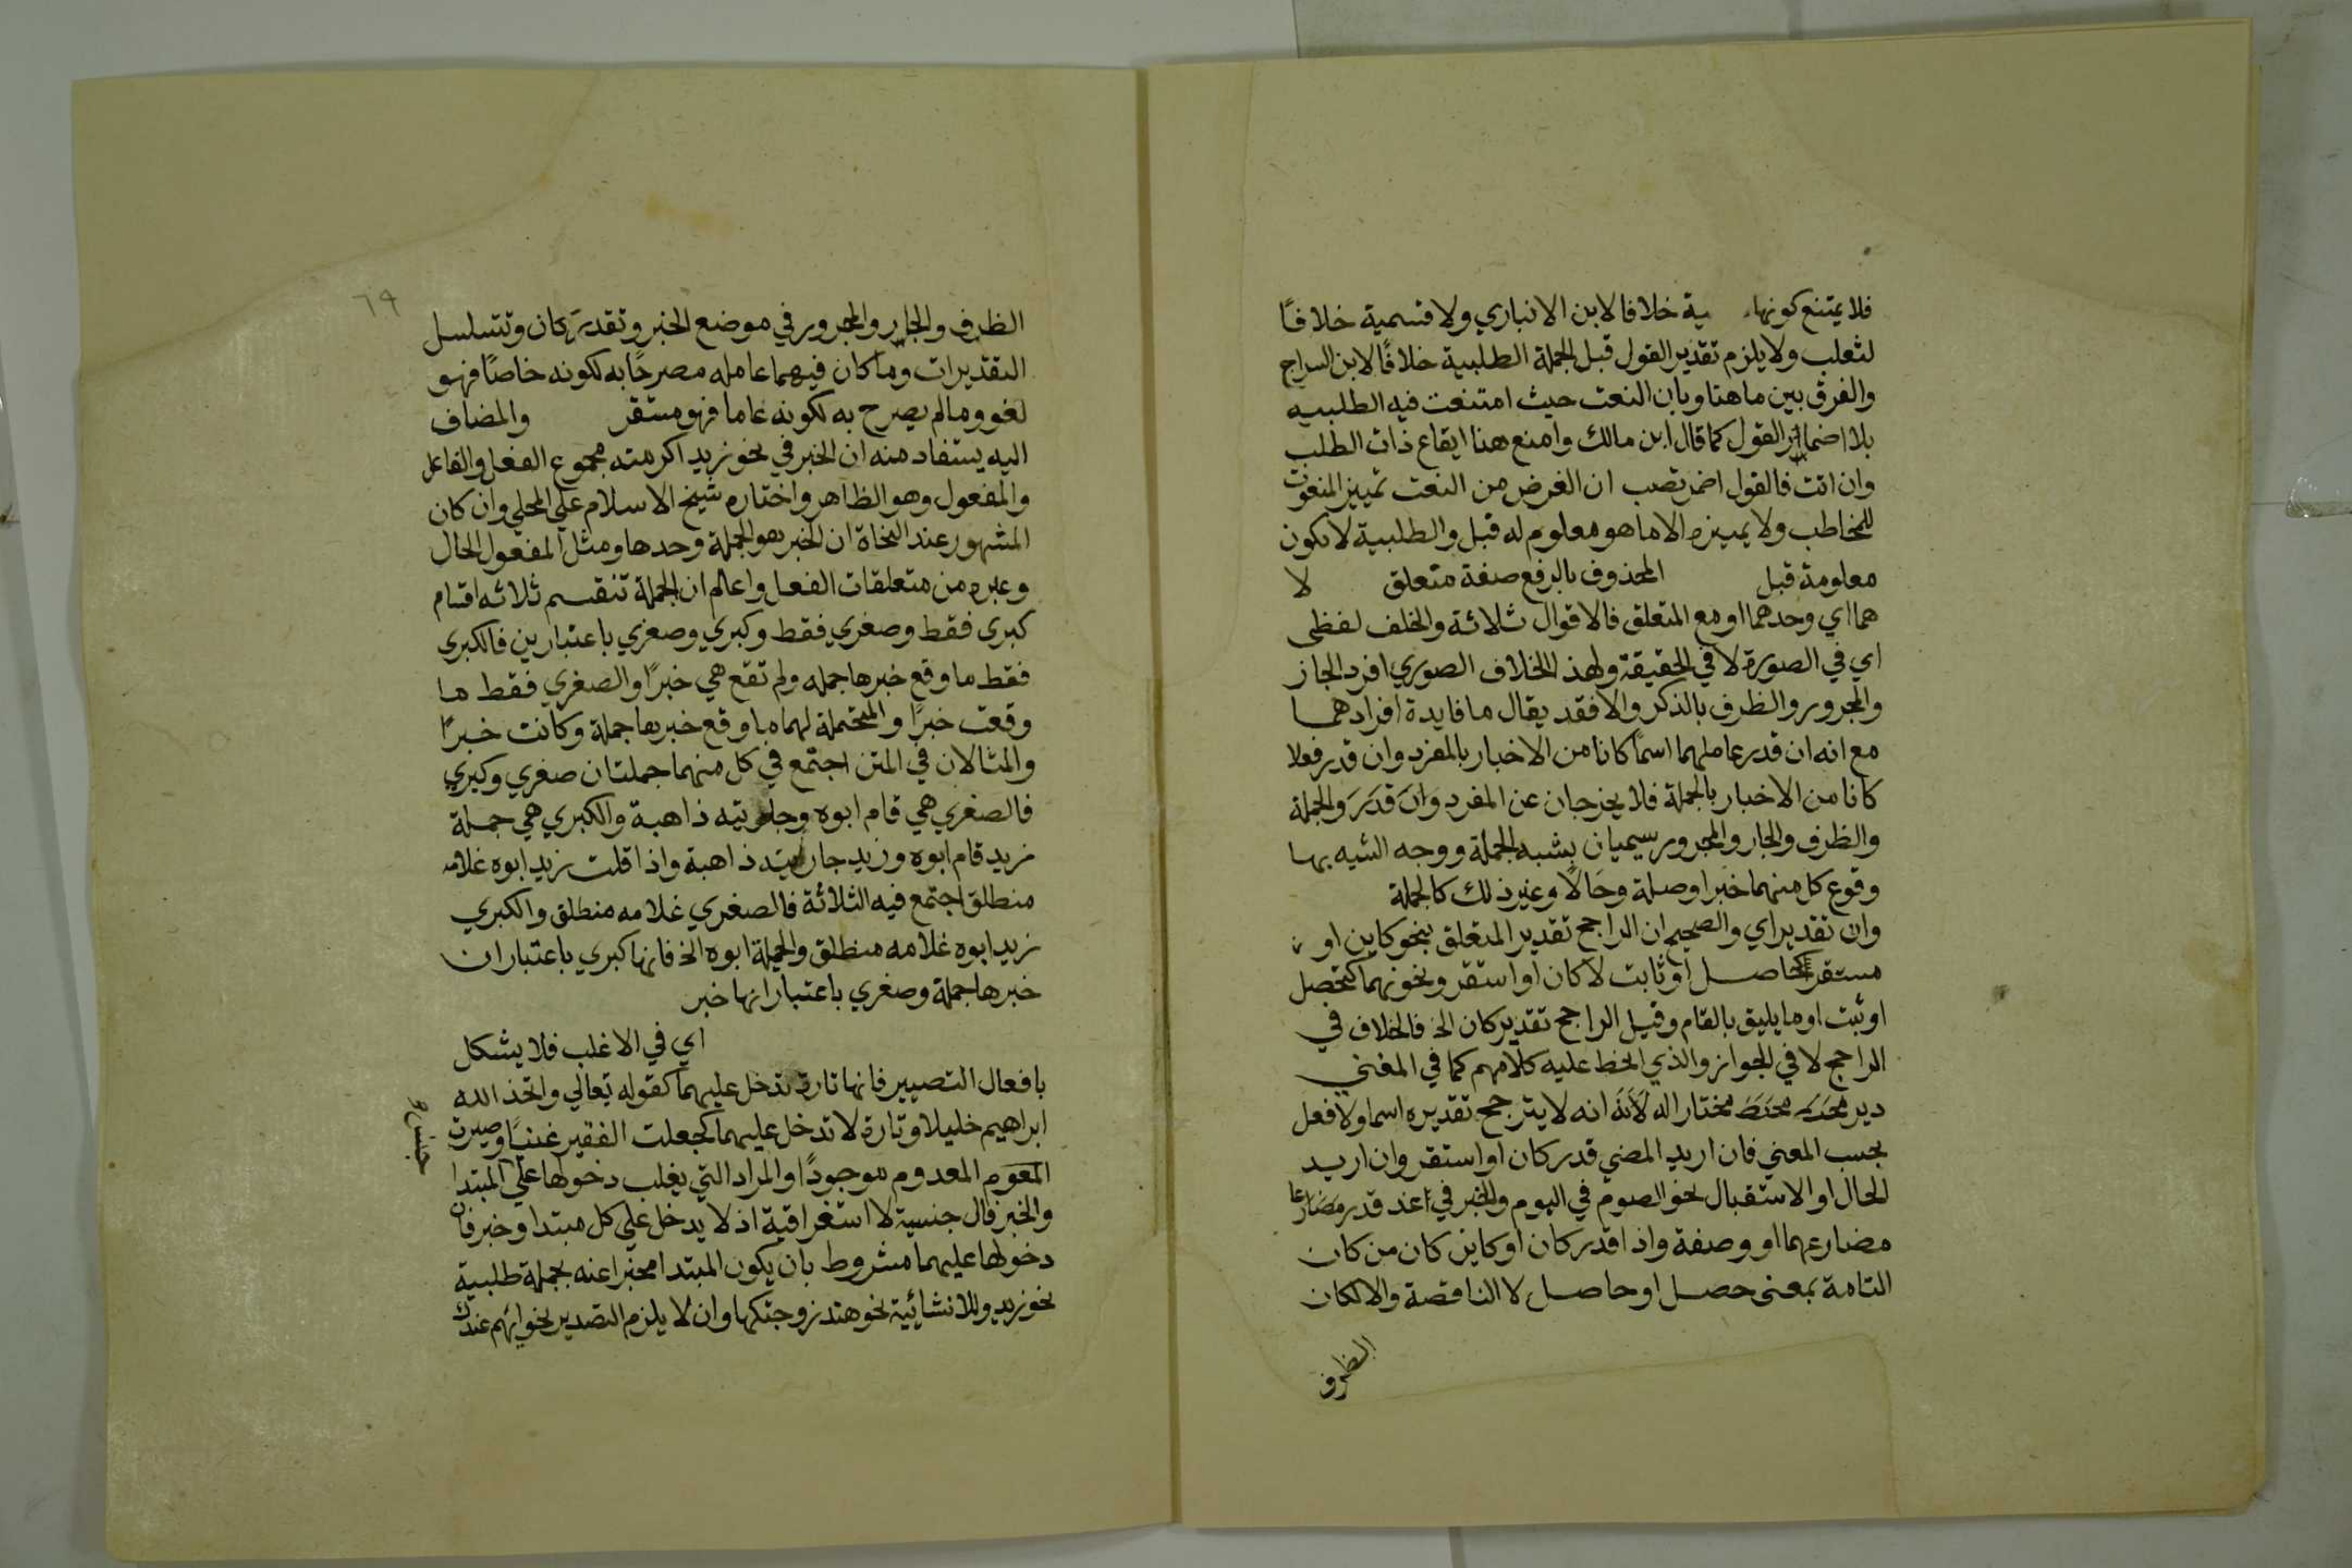 فلا يمتنع كونها ية خلافا لابن الانباري ولا قسمية خلافًا
لثعلب ولا يلزم تقدير القول قبل الجملة الطلبية خلافًا لابن السراج
والفرق بين ما هنا وبان النعت حيث امتنعت فيه الطلبيه
بلا اضمار القول كما قال ابن مالك وامنع هنا ايقاع ذات الطلب
وان اتت فالقول اضمر تصب ان الغرض من النعت تمييز المنعوت
للمخاطب ولا يميزه الا ما هو معلوم له قبل والطلبية لا تكون
معلومة قبل المحذوف بالرفع صفة متعلق لا
هما اي وحدهما او مع المتعلق فالاقوال ثلاثة والخلف لفظي
اي في الصورة لا في الحقيقة ولهذا الخلاف الصوري افرد الجار
والمجرور والظرف بالذكر والا فقد يقال ما فايدة افرادهما
مع انه ان قدر عاملهما اسمًا كانا من الاخبار بالمفرد وان قدر فعلا
كانا من الاخبار بالجملة فلا يخرجان عن المفرد وان قدر والجملة
والظرف والجار والمجرور يسميان بشبه الجملة ووجه الشبه بها
وقوع كل منهما خبرا وصلة وحالًا وغير ذلك كالجملة
وان تقدير اي والصحيح ان الراجح تقدير المتعلق بنحو كاين او
مستقر كحاصل او ثابت لا كان او استقر ونحوهما كتحصل
او ثبت او ما يليق بالقام وقيل الراجح تقدير كان الخ فالخلاف في
الراجح لا في الجواز والذي الخط عليه كلامهم كما في المغني
مختار اله لانه انه لا يترجح تقديره اسما ولا فعل
بحسب المعني فان اريد المضي قدر كان او استقر وان اريد
الحال او الاستقبال نحو الصوم في اليوم والخبر في اغد قدر مضارعا
مضارعهما او وصفة واذا قدر كان او كاين كان من كان
التامة بمعنى حصل او حاصل لا الناقصة والا لكان
الظرف
٦٩
الظرف والجار والمجرور في موضع الخبر وتقدر كان وتتسلسل
التقديرات وما كان فيهما عامله مصرحًا به لكونه خاصًا فهو
لغو وما لم يصرح به لكونه عاما فهو مستقر والمضاف
اليه يستفاد منه ان الخبر في نحو زيد اكرمته مجموع الفعل والفاعل
والمفعول وهو الظاهر واختاره شيخ الاسلام علي المحلي وان كان
المشهور عند النحاة ان الخبر هو الجملة وحدها ومثل المفعول الحال
وغيره من متعلقات الفعل واعلم ان الجملة تنقسم ثلاثه اقسام
كبرى فقط وصغري فقط وكبري وصغري باعتبارين فالكبرى
فقط ما وقع خبرها جمله ولم تقع هي خبرًا والصغري فقط ما
وقعت خبرًا والمحتملة لهما ما وقع خبرها جملة وكانت خبرًا
والمثالان في المتن اجتمع في كل منهما جملتان صغري وكبري
فالصغري هي قام ابوه وجاريته ذاهبة والكبري هي جملة
زيد قام ابوه وزيد جاريته ذاهبة واذا قلت زيد ابوه غلامه
منطلق اجتمع فيه الثلاثة فالصغري غلامه منطلق والكبري
زيد ابوه غلامه منطلق والجملة ابوه الخ فانها كبري باعتبار ان
خبرها جملة وصغري باعتبار انها خبر
اي في الاغلب فلا يشكل
بافعال التصيير فانها تارة تدخل عليهما كقوله تعالي واتخذ الله
ابراهيم خليلا وتارة لا تدخل عليهما كجعلت الفقير غنيًا وصيرت
المعدوم موجودًا او المراد التي يغلب دخولها علي المبتدا
والخبر فال جنسية لا استغراقية اذ لا يدخل علي كل مبتدا وخبر فان
دخولها عليهما مشروط بان يكون المبتدا مخبرا عنه بجملة طلبية
نحو زيد وللانشائية نحو هند زوجتكها وان لا يلزم التصدير نحو ايهم عندك